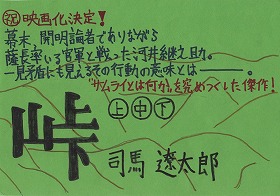 祝映画化決定!
幕末、開明論者でありながら
薩長率いる官軍と戦った河井継之助。
一見矛盾にも見えるその行動の意味とは───。
“サムライとは何か”を究めつくした傑作!
上中下
峠
司馬遼太郎